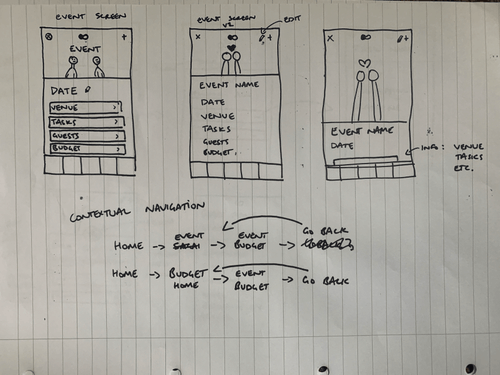 EVENT SCREEN
EVENT
DATE
VENUE >
TASKS >
GUESTS >
BUDGET >
EVENT SCREEN
V2
EDIT
EVENT NAME
DATE
VENUE
TASKS
GUESTS
BUDGET.
EVENT NAME
DATE
INFO: VENUE
TASKS
ETC.
CONTEXTUAL NAVIGATION
HOME → EVENT → EVENT BUDGET → GO BACK
HOME → BUDGET HOME → EVENT BUDGET → GO BACK